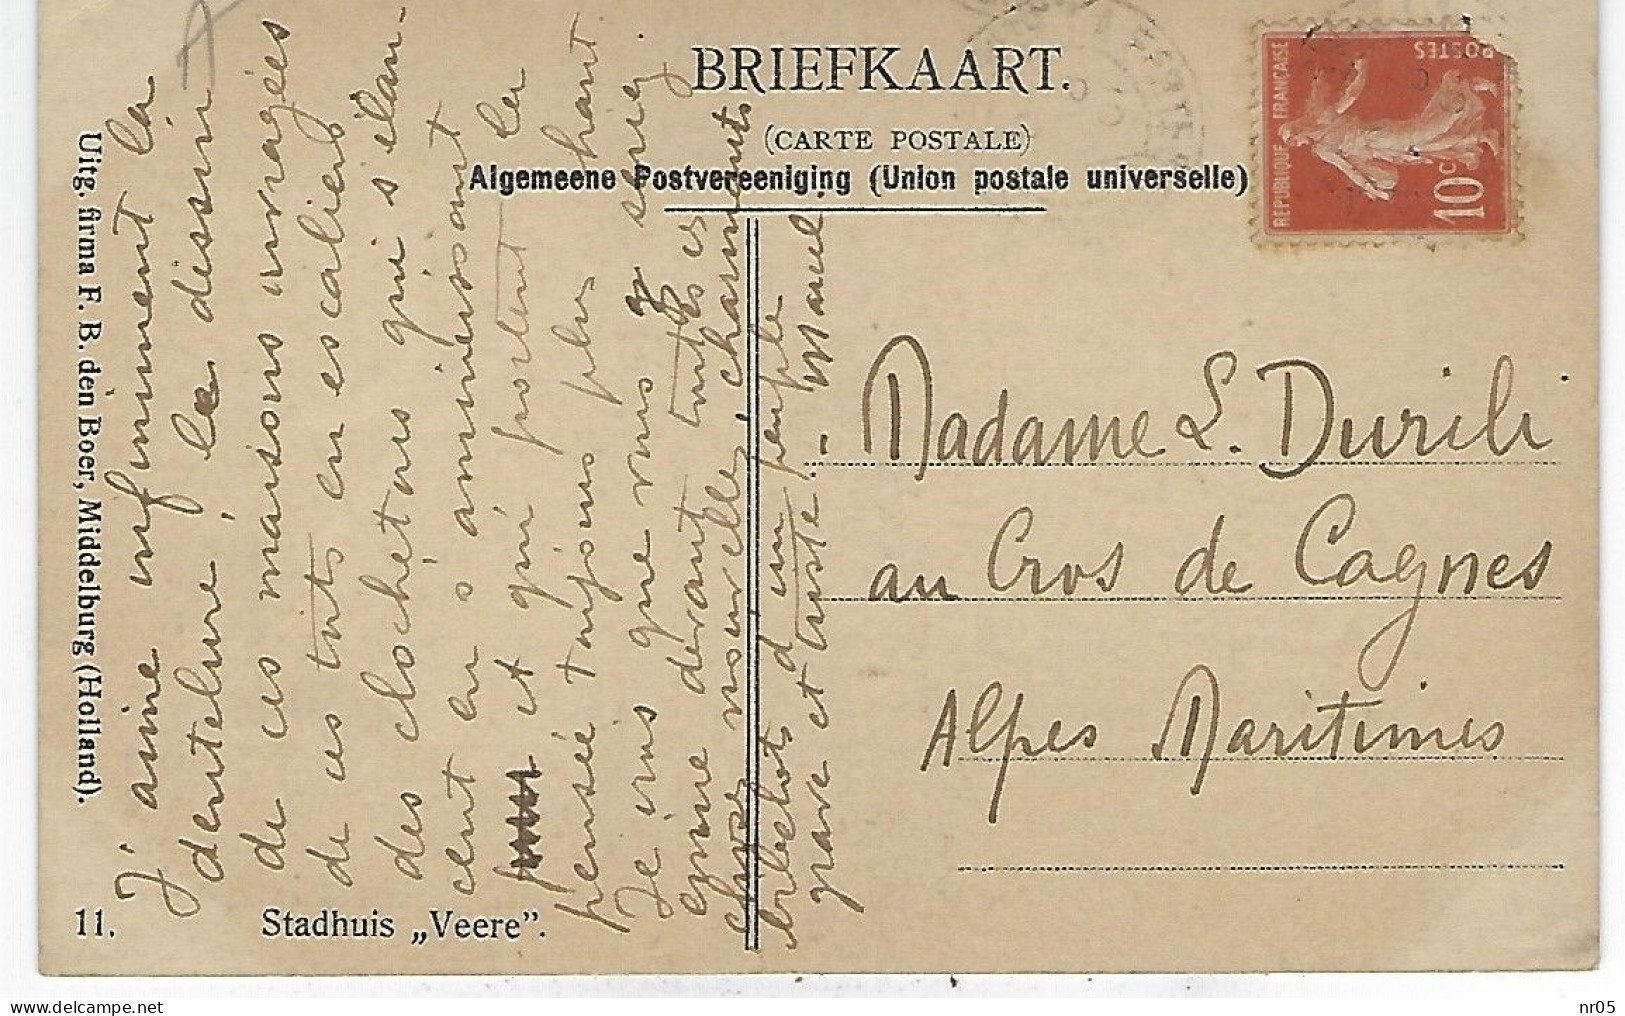 BRIEFKAART.
(CARTE POSTALE)
Algemeene Postvereeniging (Union postale universelle)
REPUBLIQUE FRANÇAISE
POSTES
10c
J'aime infiniment la
dentelure, le dessin
de ces maisons ouvragées
de ces toits en escaliers
des clochetons qui s'élan-
cent en s'amincissant
et qui portent la
pensée toujours plus haut
Je crois que vous seriez
éprise devant toutes ces
choses nouvelles, charmants
bibelots d'un peuple
grave et triste. Marcel.
Madame L. Durili
au Cros de Cagnes
Alpes Maritimes
Uitg. firma F. B. den Boer, Middelburg (Holland).
11. Stadhuis „Veere”.
delcampe.net
nr05